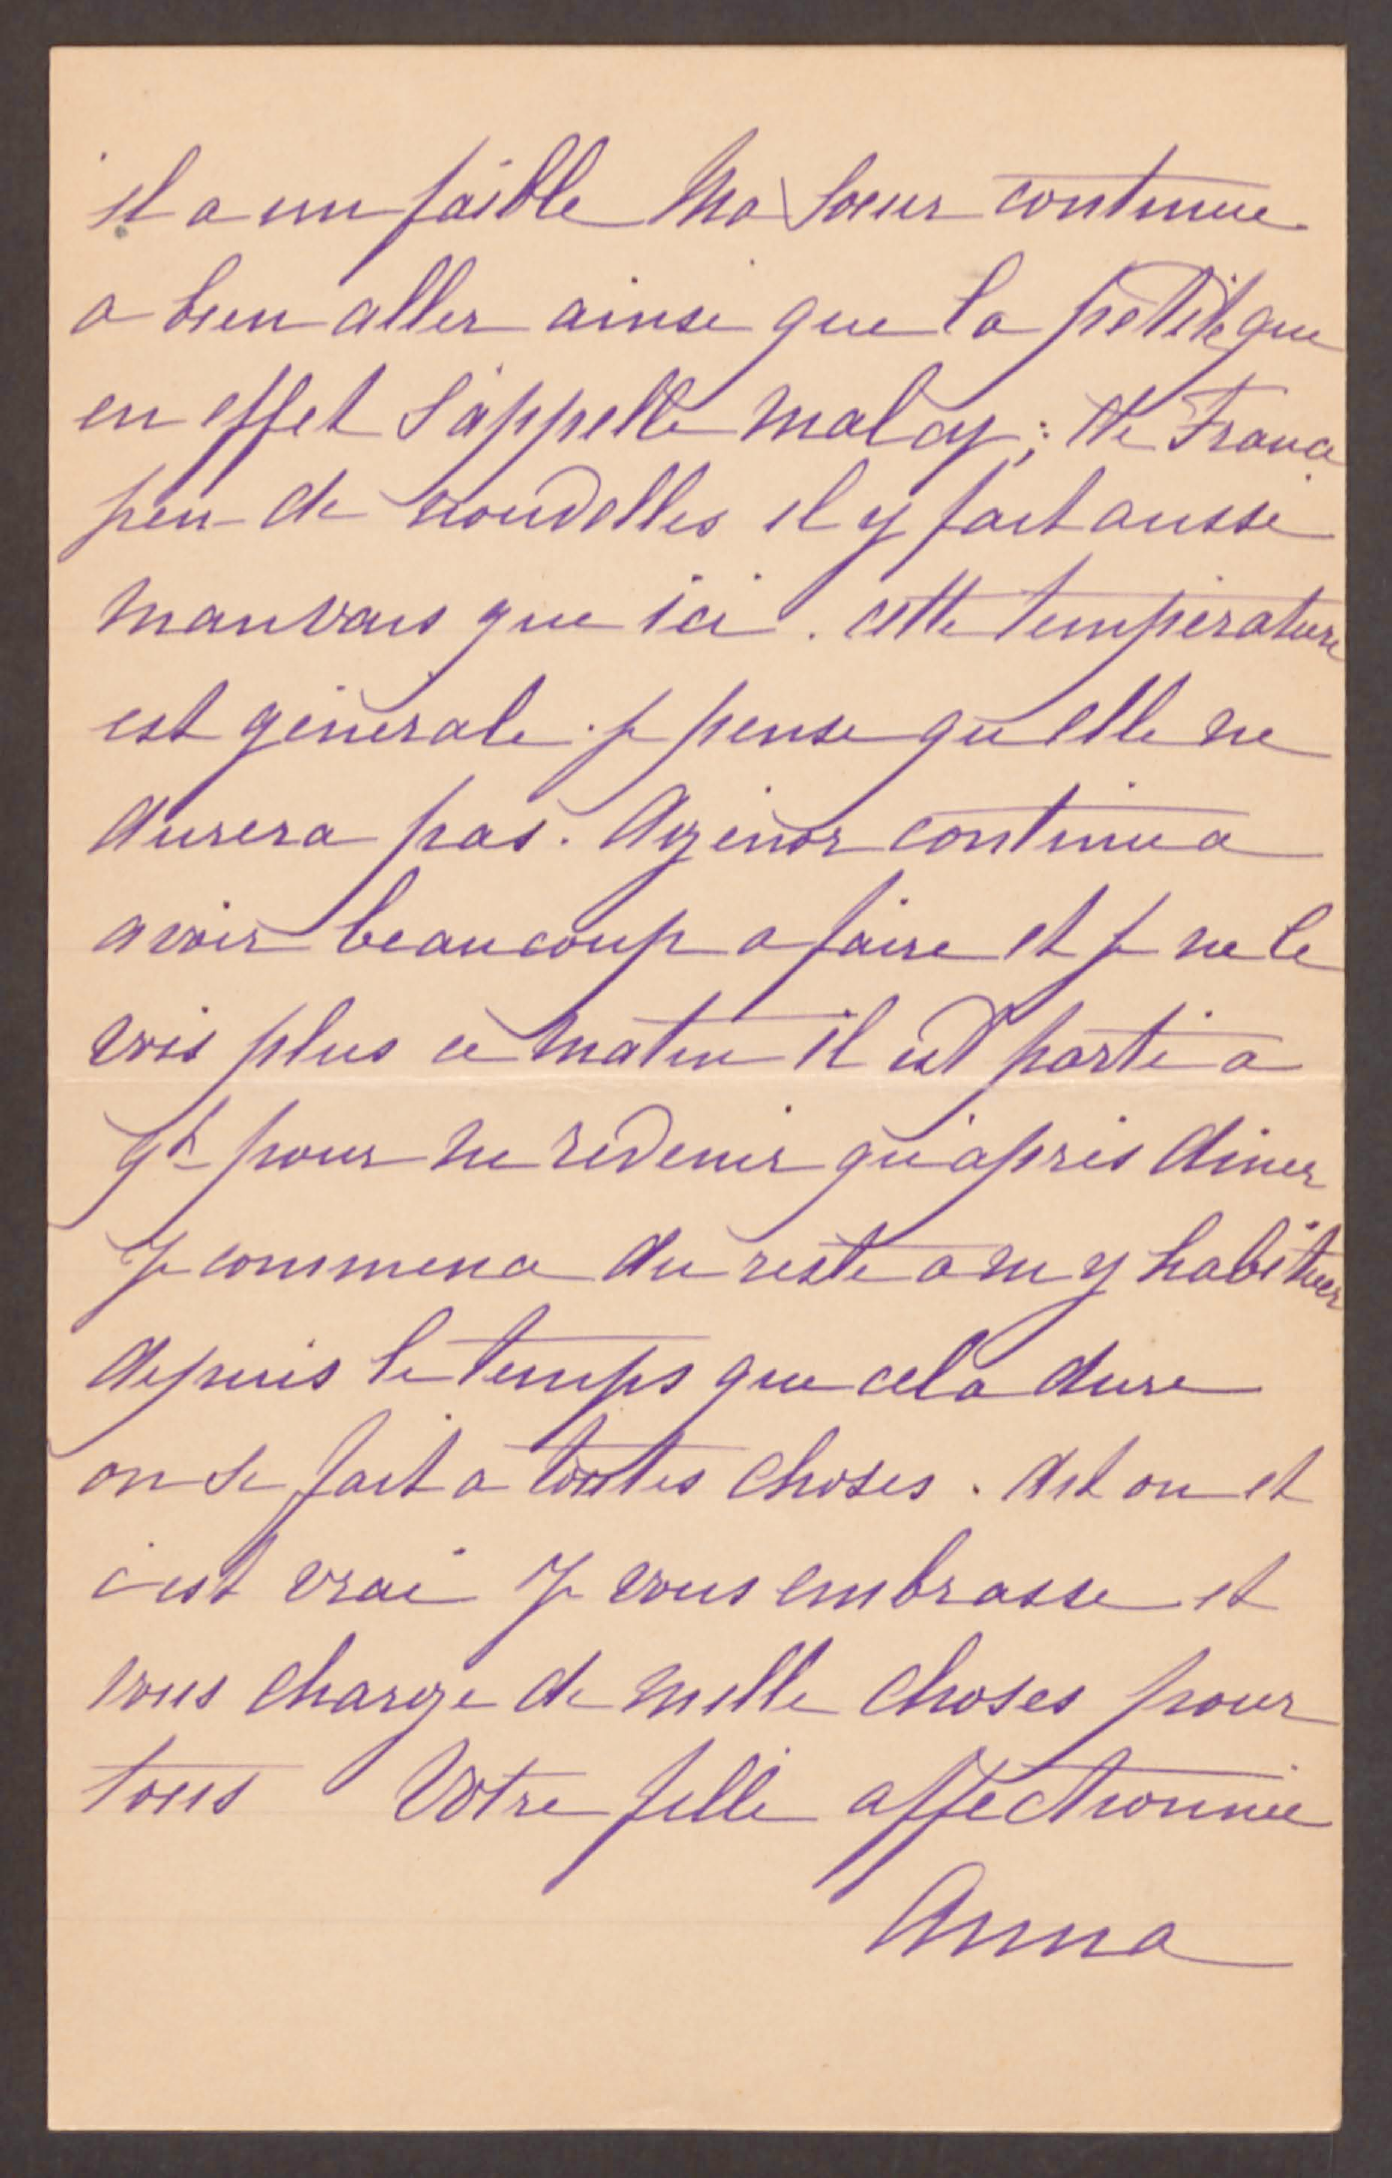 il a un faible Ma Soeur continue
a bien aller ainsi que la petite que
en effet s'appelle Malcy; De France
peu de nouvelles il y fait aussi
mauvais que ici. cette température
est générale. je pense qu'elle ne
durera pas. Agénor continue a
avoir beaucoup a faire et je ne le
vois plus ce matin il est parti a
9h pour ne revenir qu'après diner
Je commence du reste a m y habituer
depuis le temps que cela dure
on se fait a toutes choses. dit on et
c'est vrai Je vous embrasse et
vous charge de mille choses pour
tous Votre fille affectionnée
Anna